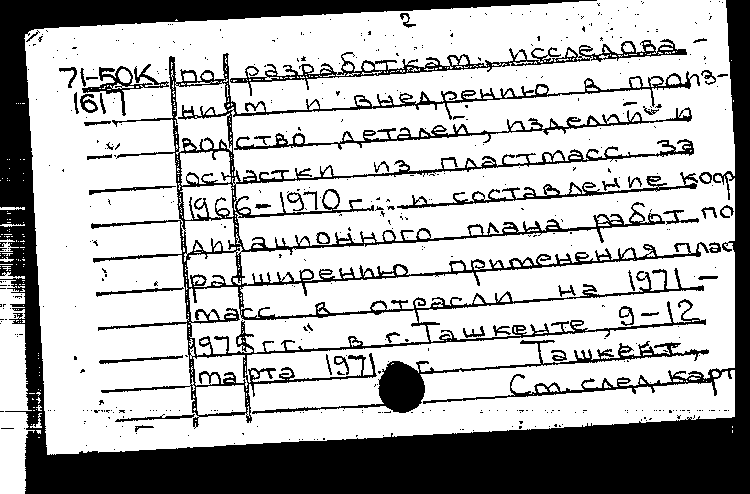 2
71-50К по разработкам, исследова-
1617 ниям и внедрению в произ-
водство деталей, изделий и
оснастки из пластмасс за
1966-1970 г. и составление коор
динационного плана работ по
расширению применения пласт
масс в отрасли на 1971-
1975 гг." в г. Ташкенте, 9-12
марта 1971 г. Ташкент,
См. след. карт